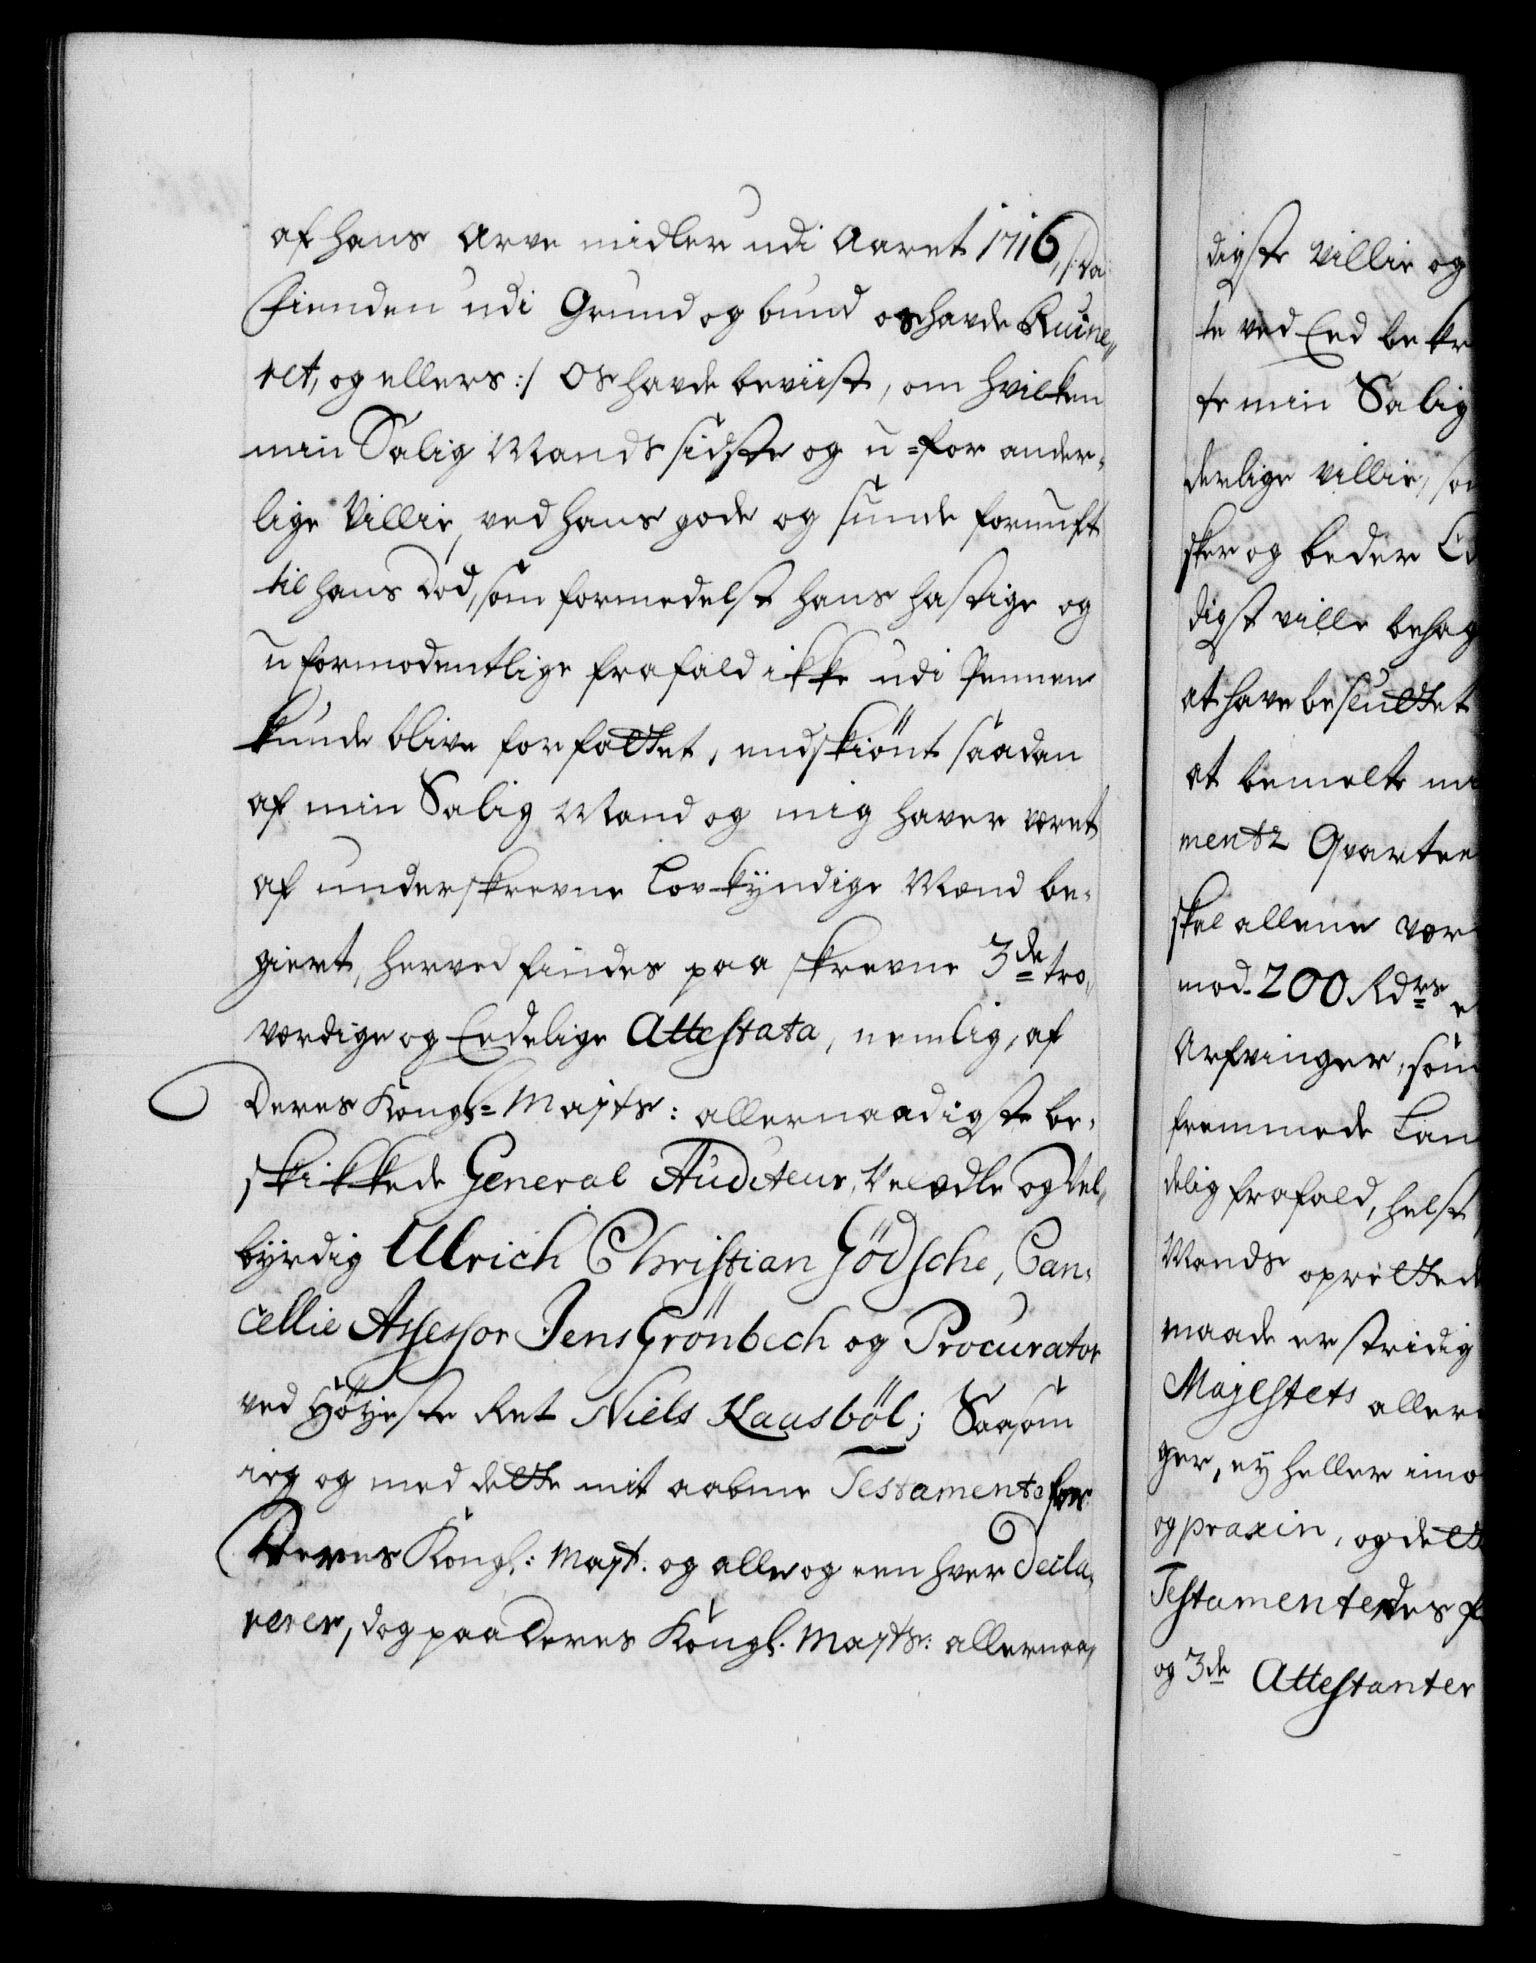 af hans Arve midler udi Aaret 1716, /: da
Fienden udi Grund og bund os havde Ruine„
ret, og ellers :/ Os havde beviist, om hvilken
min Salig Mands sidste og u=for ander„
lige Villie, ved hans gode og sunde fornuft
til hans Död, som formedelst hans hastige og
uformodentlige frafald ikke udi Pennen
kunde blive forfattet, endskiönt saadan
af min Salig Mand og mig haver været
af underskrevne Lov-kyndige Mænd be„
giert, herved findes paa skrevne 3de tro„
værdige og Eedelige Attestata, nemlig, af
Deres Kongl= Majts: allernaadigste be„
skikkede General Auditeur, Velædle og Vel„
byrdig Ulrich Christian Gödsche, Can„
cellie Assessor Jens Grönbech og Procurator
ved Höyeste Ret Niels Kaasböl; Saasom
ieg og med dette mit aabne Testamente for
Deres Kongl: Mayt. og alle og een hver Decla„
rerer, dog paa Deres Kongl. Mayts: allernaa„
digste Villie og
te ved Eed bekr
te min Salig
derlige Villie, som
sker og beder Ed
digst ville behag
at have besluttet
at bemelte mi
mentz Qvarteer
skal allene vær
mod 200 Rdrs e
Arfvinger, som
fremmede Lan
delig frafald, helst
Mands oprettede
maade er stridig
Majestets allern
ger, ey heller imo
og praxin, og dett
Testamente des f
og 3de Attestanter